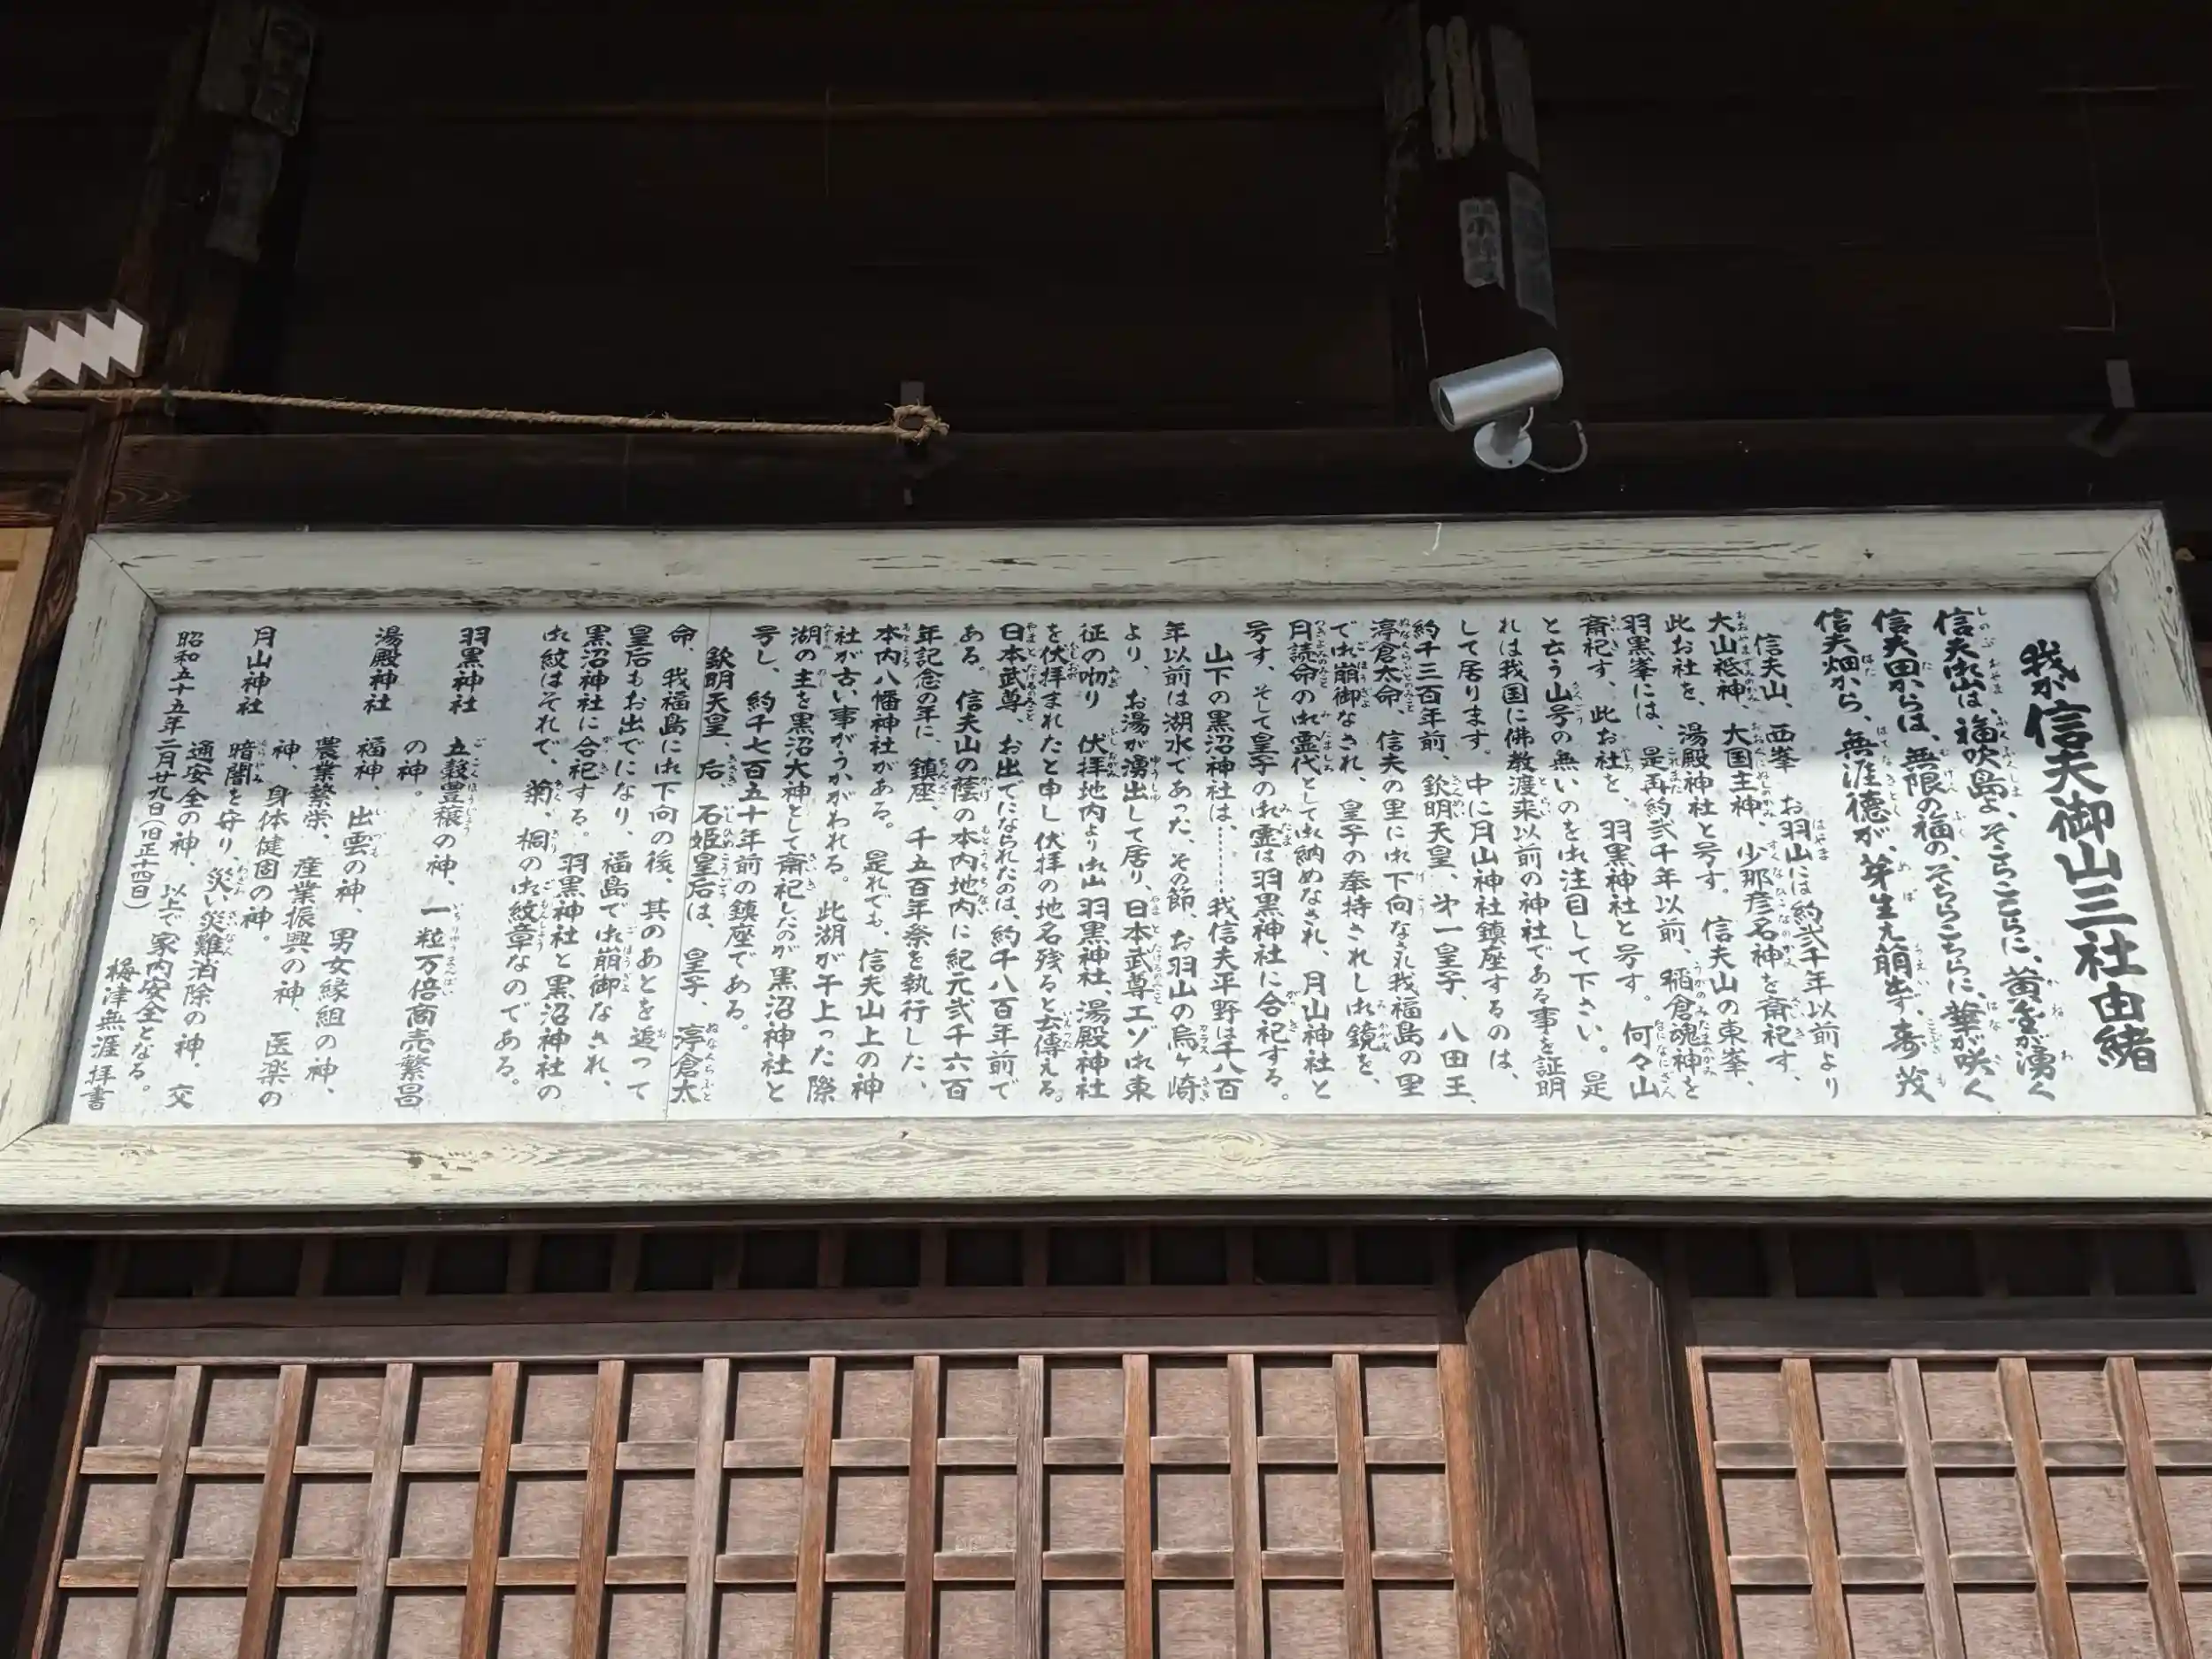 我が信夫御山三社由緒
信夫御山は、福吹島よ、そこらここらに、黄金が湧く
信夫田からは、無限の福の、そちらこちらに、華が咲く
信夫畑から、無涯徳が、芽生え萠出す、寿茂
信夫山、西峯、お羽山には約弐千年以前より
大山祗神、大国主神、少那彦名神を斎祀す、
此お社を、湯殿神社と号す。信夫山の東峯、
羽黒峯には、是再約弐千年以前、稲倉魂神を
斎祀す、此お社を、羽黒神社と号す。何々山
と云う山号の無いのを御注目して下さい。是
れは我国に佛教渡来以前の神社である事を証明
して居ります。中に月山神社鎮座するのは、
約千三百年前、欽明天皇、第一皇子、八田王、
渟倉太命、信夫の里に御下向なされ我福島の里
で御崩御なされ、皇子の奉持されし御鏡を、
月読命の御霊代として御納めなされ、月山神社と
号す、そして皇子の御霊は羽黒神社に合祀する。
山下の黒沼神社は、………我信夫平野は千八百
年以前は湖水であった、その節、お羽山の烏ヶ崎
より、お湯が湧出して居り、日本武尊エゾ御東
征の吻り 伏拝地内より御山羽黒神社、湯殿神社
を伏拝まれたと申し伏拝の地名残ると云傳える。
日本武尊、お出でになられたのは、約千八百年前で
ある。信夫山の蔭の本内地内に紀元弐千六百
年記念の年に、鎮座、千五百年祭を執行した、
本内八幡神社がある。是れでも、信夫山上の神
社が古い事がうかがわれる。此湖が干上った際
湖の主を黒沼大神として斎祀したのが黒沼神社と
号し、約千七百五十年前の鎮座である。
欽明天皇、后、石姫皇后は、皇子、渟倉太
命、我福島に御下向の後、其のあとを追って
皇后もお出でになり、福島で御崩御なされ、
黒沼神社に合祀する。羽黒神社と黒沼神社の
御紋はそれで、菊、桐の御紋章なのである。
羽黒神社 五穀豊穣の神、一粒万倍商売繁昌
の神。
湯殿神社 福神、出雲の神、男女縁組の神、
農業繁栄、産業振興の神、医楽の
神、身体健固の神。
月山神社 暗闇を守り、災い災難消除の神、交
通安全の神、以上で家内安全となる。
昭和五十五年二月廿九日（旧正十四日）
梅津無涯拝書